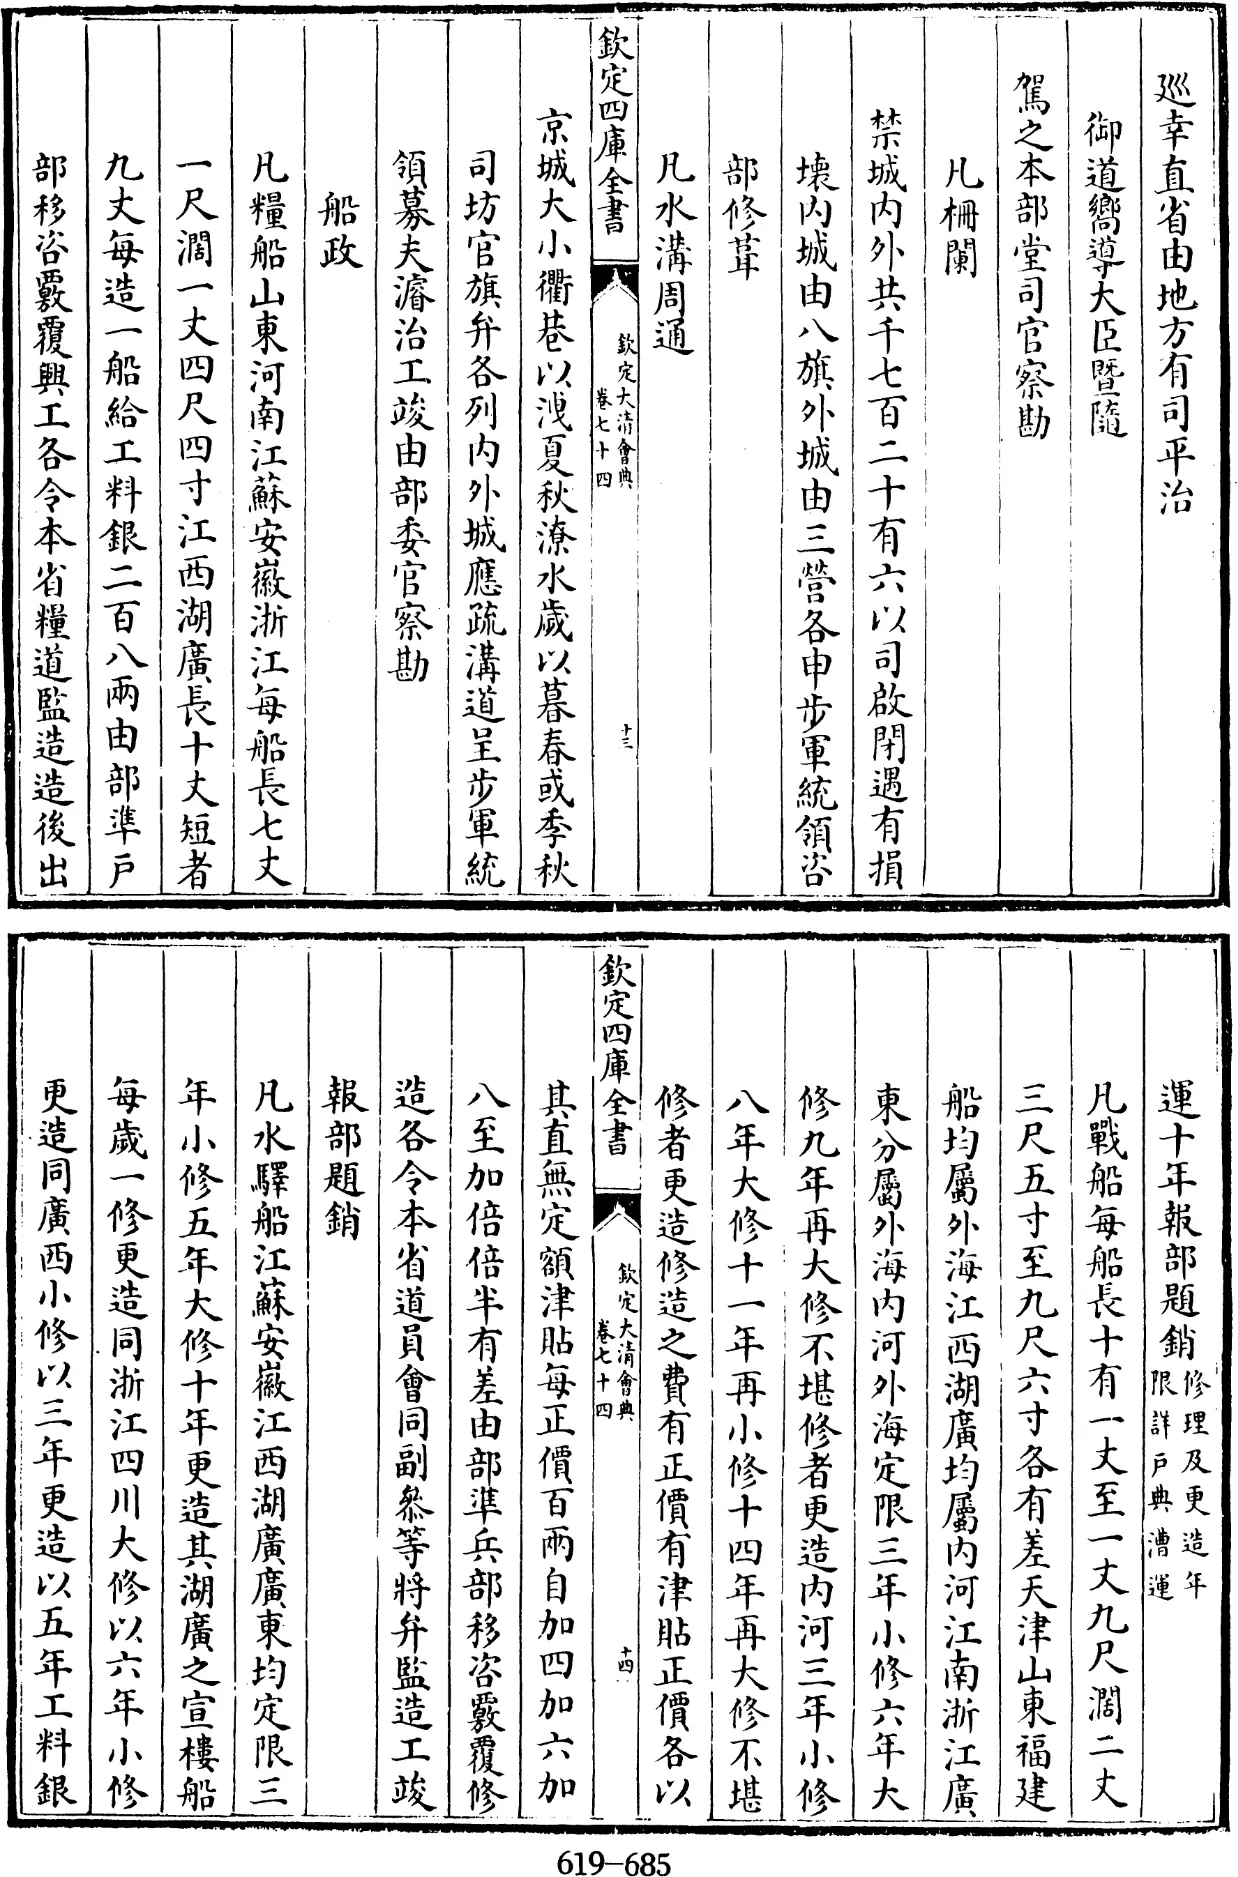 廵幸直省由地方有司平治
御道嚮導大臣暨隨
駕之本部堂司官察勘
凡柵闌
禁城内外共千七百二十有六以司啟閉遇有損
壊内城由八旗外城由三營各申步軍統領咨
部修葺
凡水溝周通
欽定四庫全書
欽定大清會典
卷七十四
十三
京城大小衢巷以洩夏秋潦水歲以暮春或季秋
司坊官旗弁各列内外城應疏溝道呈步軍統
領募夫濬治工竣由部委官察勘
船政
凡糧船山東河南江蘇安徽浙江每船長七丈
一尺濶一丈四尺四寸江西湖廣長十丈短者
九丈每造一船給工料銀二百八兩由部準戸
部移咨覈覆興工各令本省糧道監造造後出
運十年報部題銷
修理及更造年
限詳戸典漕運
凡戰船每船長十有一丈至一丈九尺濶二丈
三尺五寸至九尺六寸各有差天津山東福建
船均屬外海江西湖廣均屬内河江南浙江廣
東分屬外海内河外海定限三年小修六年大
修九年再大修不堪修者更造内河三年小修
八年大修十一年再小修十四年再大修不堪
修者更造修造之費有正價有津貼正價各以
欽定四庫全書
欽定大清會典
卷七十四
十四
其直無定額津貼每正價百兩自加四加六加
八至加倍倍半有差由部準兵部移咨覈覆修
造各令本省道員會同副叅等將弁監造工竣
報部題銷
凡水驛船江蘇安徽江西湖廣廣東均定限三
年小修五年大修十年更造其湖廣之宣樓船
每歲一修更造同浙江四川大修以六年小修
更造同廣西小修以三年更造以五年工料銀
619-685